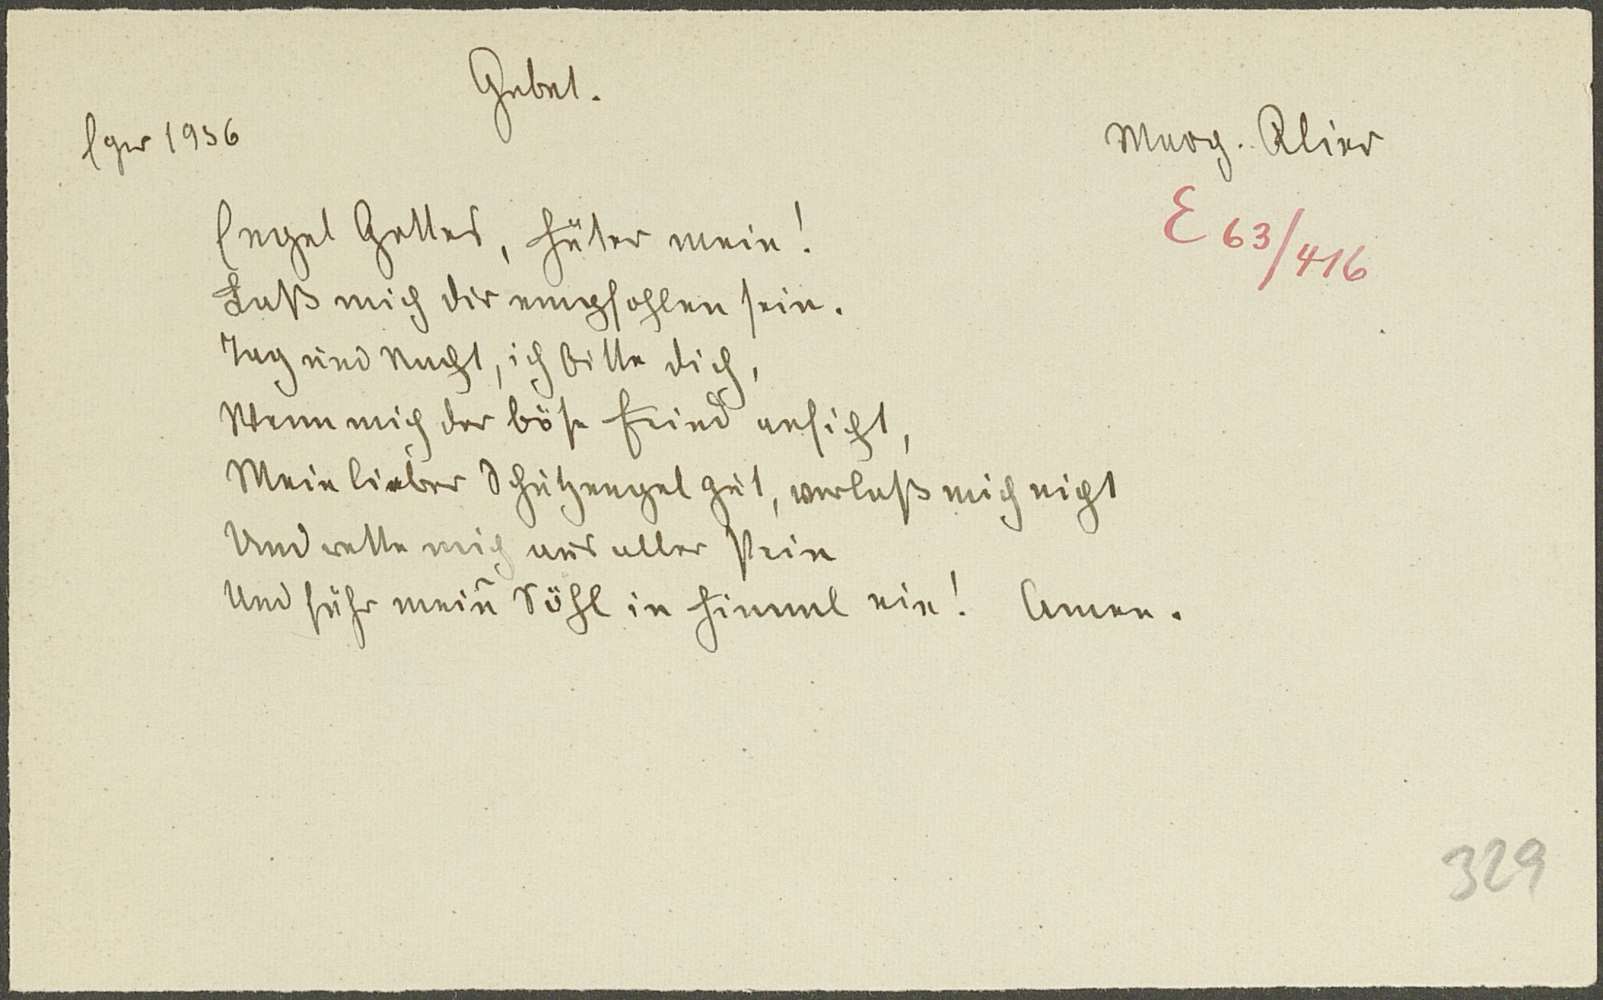 Gebet.
Eger 1936
Marg. Klier
E 63/416
Engel Gottes, Hüter mein!
Laß mich dir empfohlen sein.
Tag und Nacht, ich bitte dich,
Wenn mich der böse Feind anficht,
Mein lieber Schutzengel gut, verlaß mich nicht
Und rette mich aus aller Pein
Und führ mein̄ Söhl in Himml ein! Amen.
329